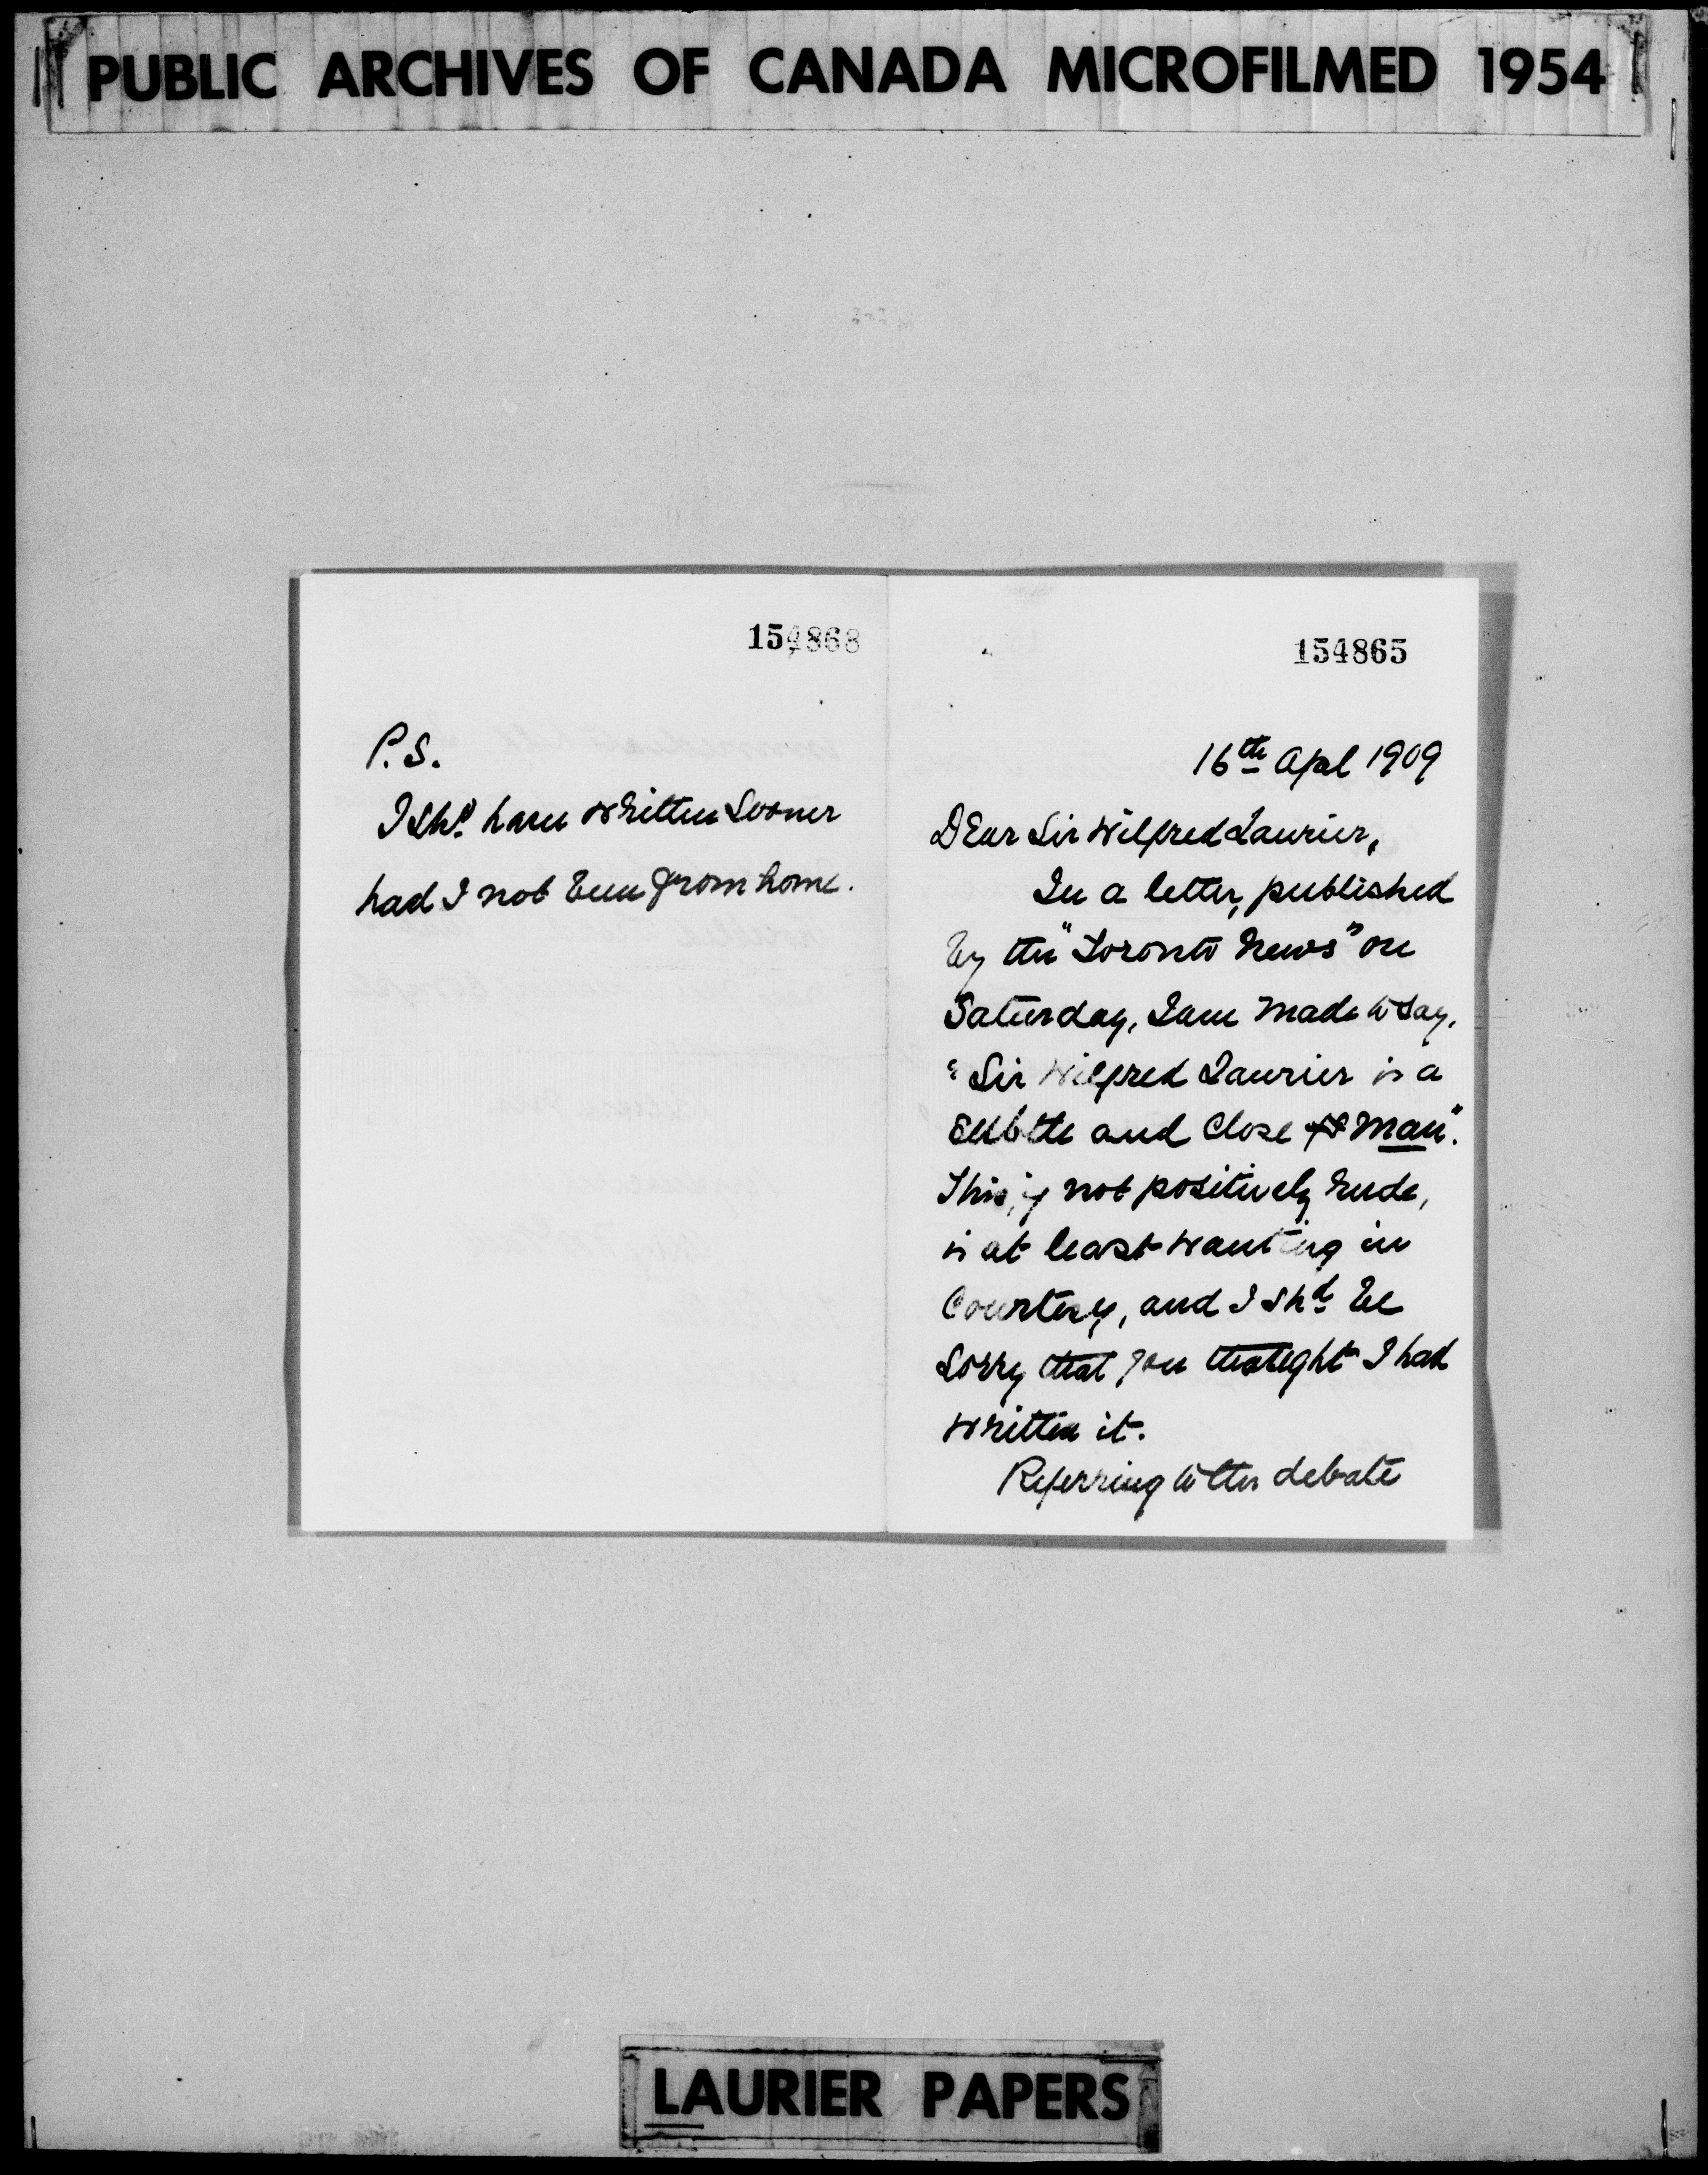 PUBLIC ARCHIVES OF CANADA MICROFILMED 1954
154868
P.S.
I shd. have written sooner
had I not been from home.
154865
16th Aprl 1909
Dear Sir Wilfred Laurier,
In a letter, published
by the "Toronto News" on
Saturday, I am made to say,
"Sir Wilfred Laurier is a
subtle and close man".
This, if not positively rude,
is at least wanting in
Courtesy, and I shd. be
sorry that you thought I had
written it.
Referring to the debate
LAURIER PAPERS